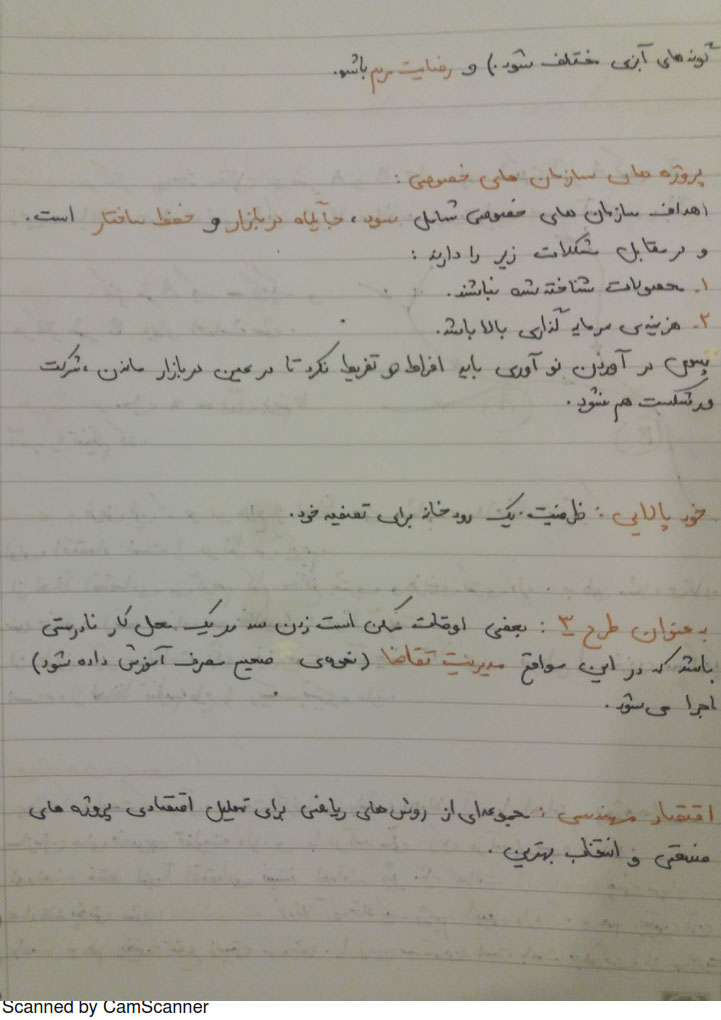 گونه های آبزی مختلف شود.) و رضایت مردم باشد.
پروژه های سازمان های خصوصی :
اهداف سازمان های خصوصی شامل سود ، جایگاه در بازار و حفظ ساختار است.
و در مقابل مشکلات زیر را دارند :
۱. محصولات شناخته شده نباشند.
۲. هزینه‌ی سرمایه گذاری بالا باشد.
پس در آوردن نوآوری باید افراط و تفریط نکرد تا در عین در بازار ماندن ، شرکت
ورشکست هم نشود.
خود پالایی : ظرفیت یک رودخانه برای تصفیه خود.
به عنوان طرح ۳ : بعضی اوقات ممکن است زدن سد در یک محل کار نادرستی
باشد که در این مواقع مدیریت تقاضا (نحوه‌ی صحیح مصرف آموزش داده شود)
اجرا می شود.
اقتصاد مهندسی : مجموعه‌ای از روش های ریاضی برای تحلیل اقتصادی پروژه های
صنعتی و انتخاب بهترین.
Scanned by CamScanner